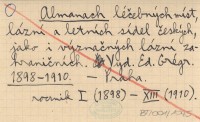 Almanach léčebných míst,
lázní a letních sídel českých,
jako i význačných lázní za-
hraničních. Vyd. Ed. Grégr.
1898–1910. – Praha.
ročník I (1898) – XIII (1910).